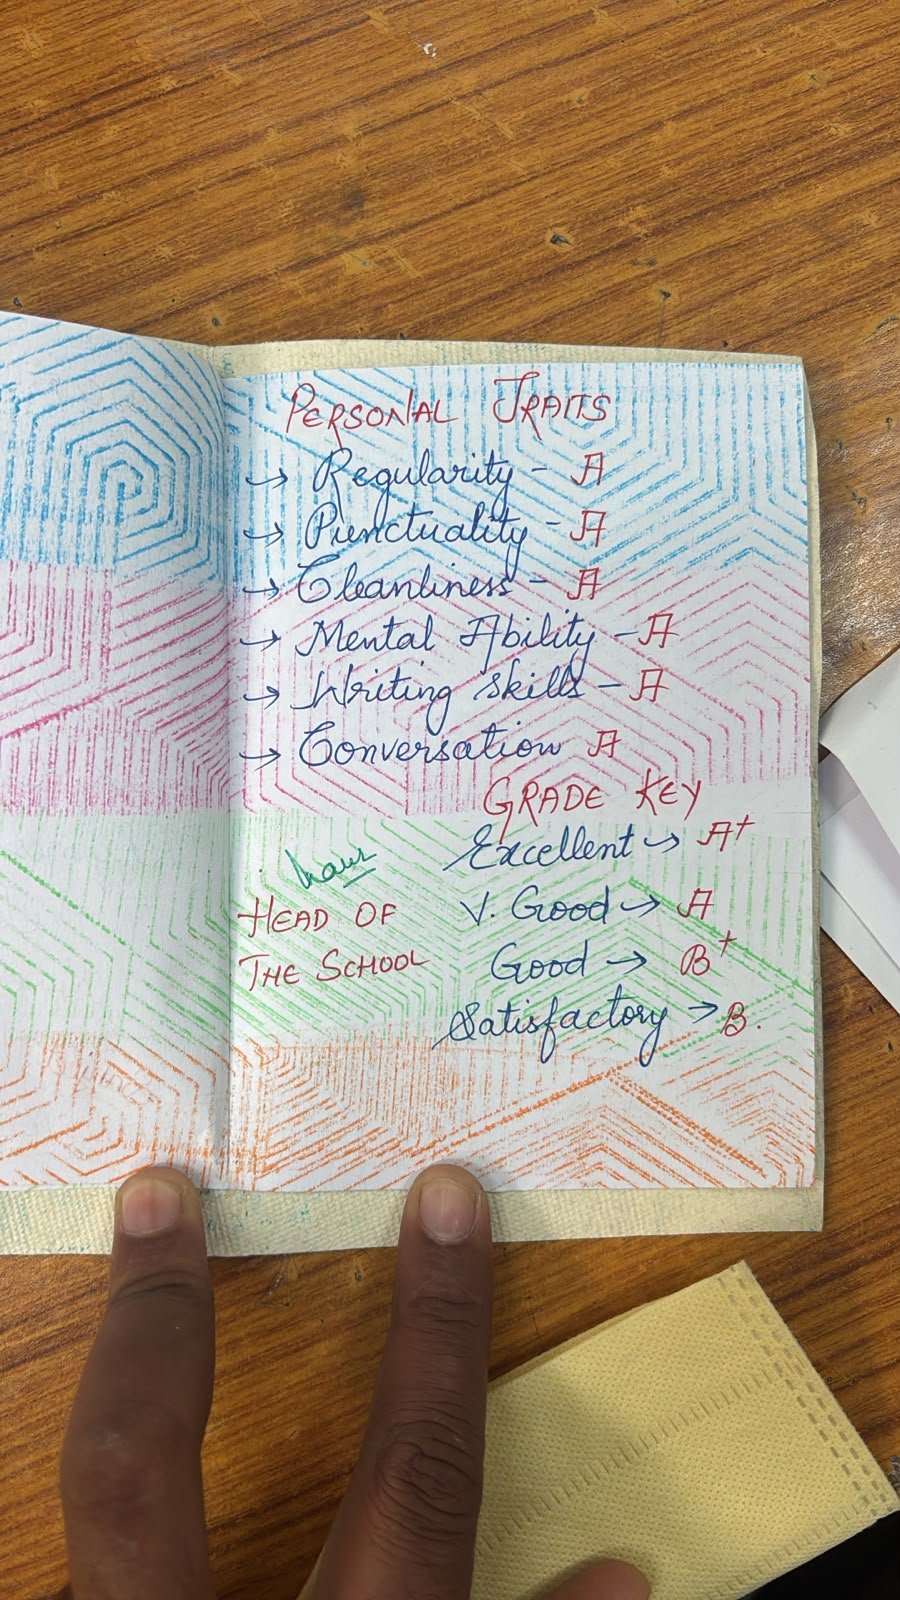 PERSONAL TRAITS
→ Regularity - A
→ Punctuality - A
→ Cleanliness - A
→ Mental Ability - A
→ Writing skills - A
→ Conversation A
GRADE KEY
Excellent → A+
V. Good → A
Good → B+
Satisfactory → B.
HEAD OF
THE SCHOOL